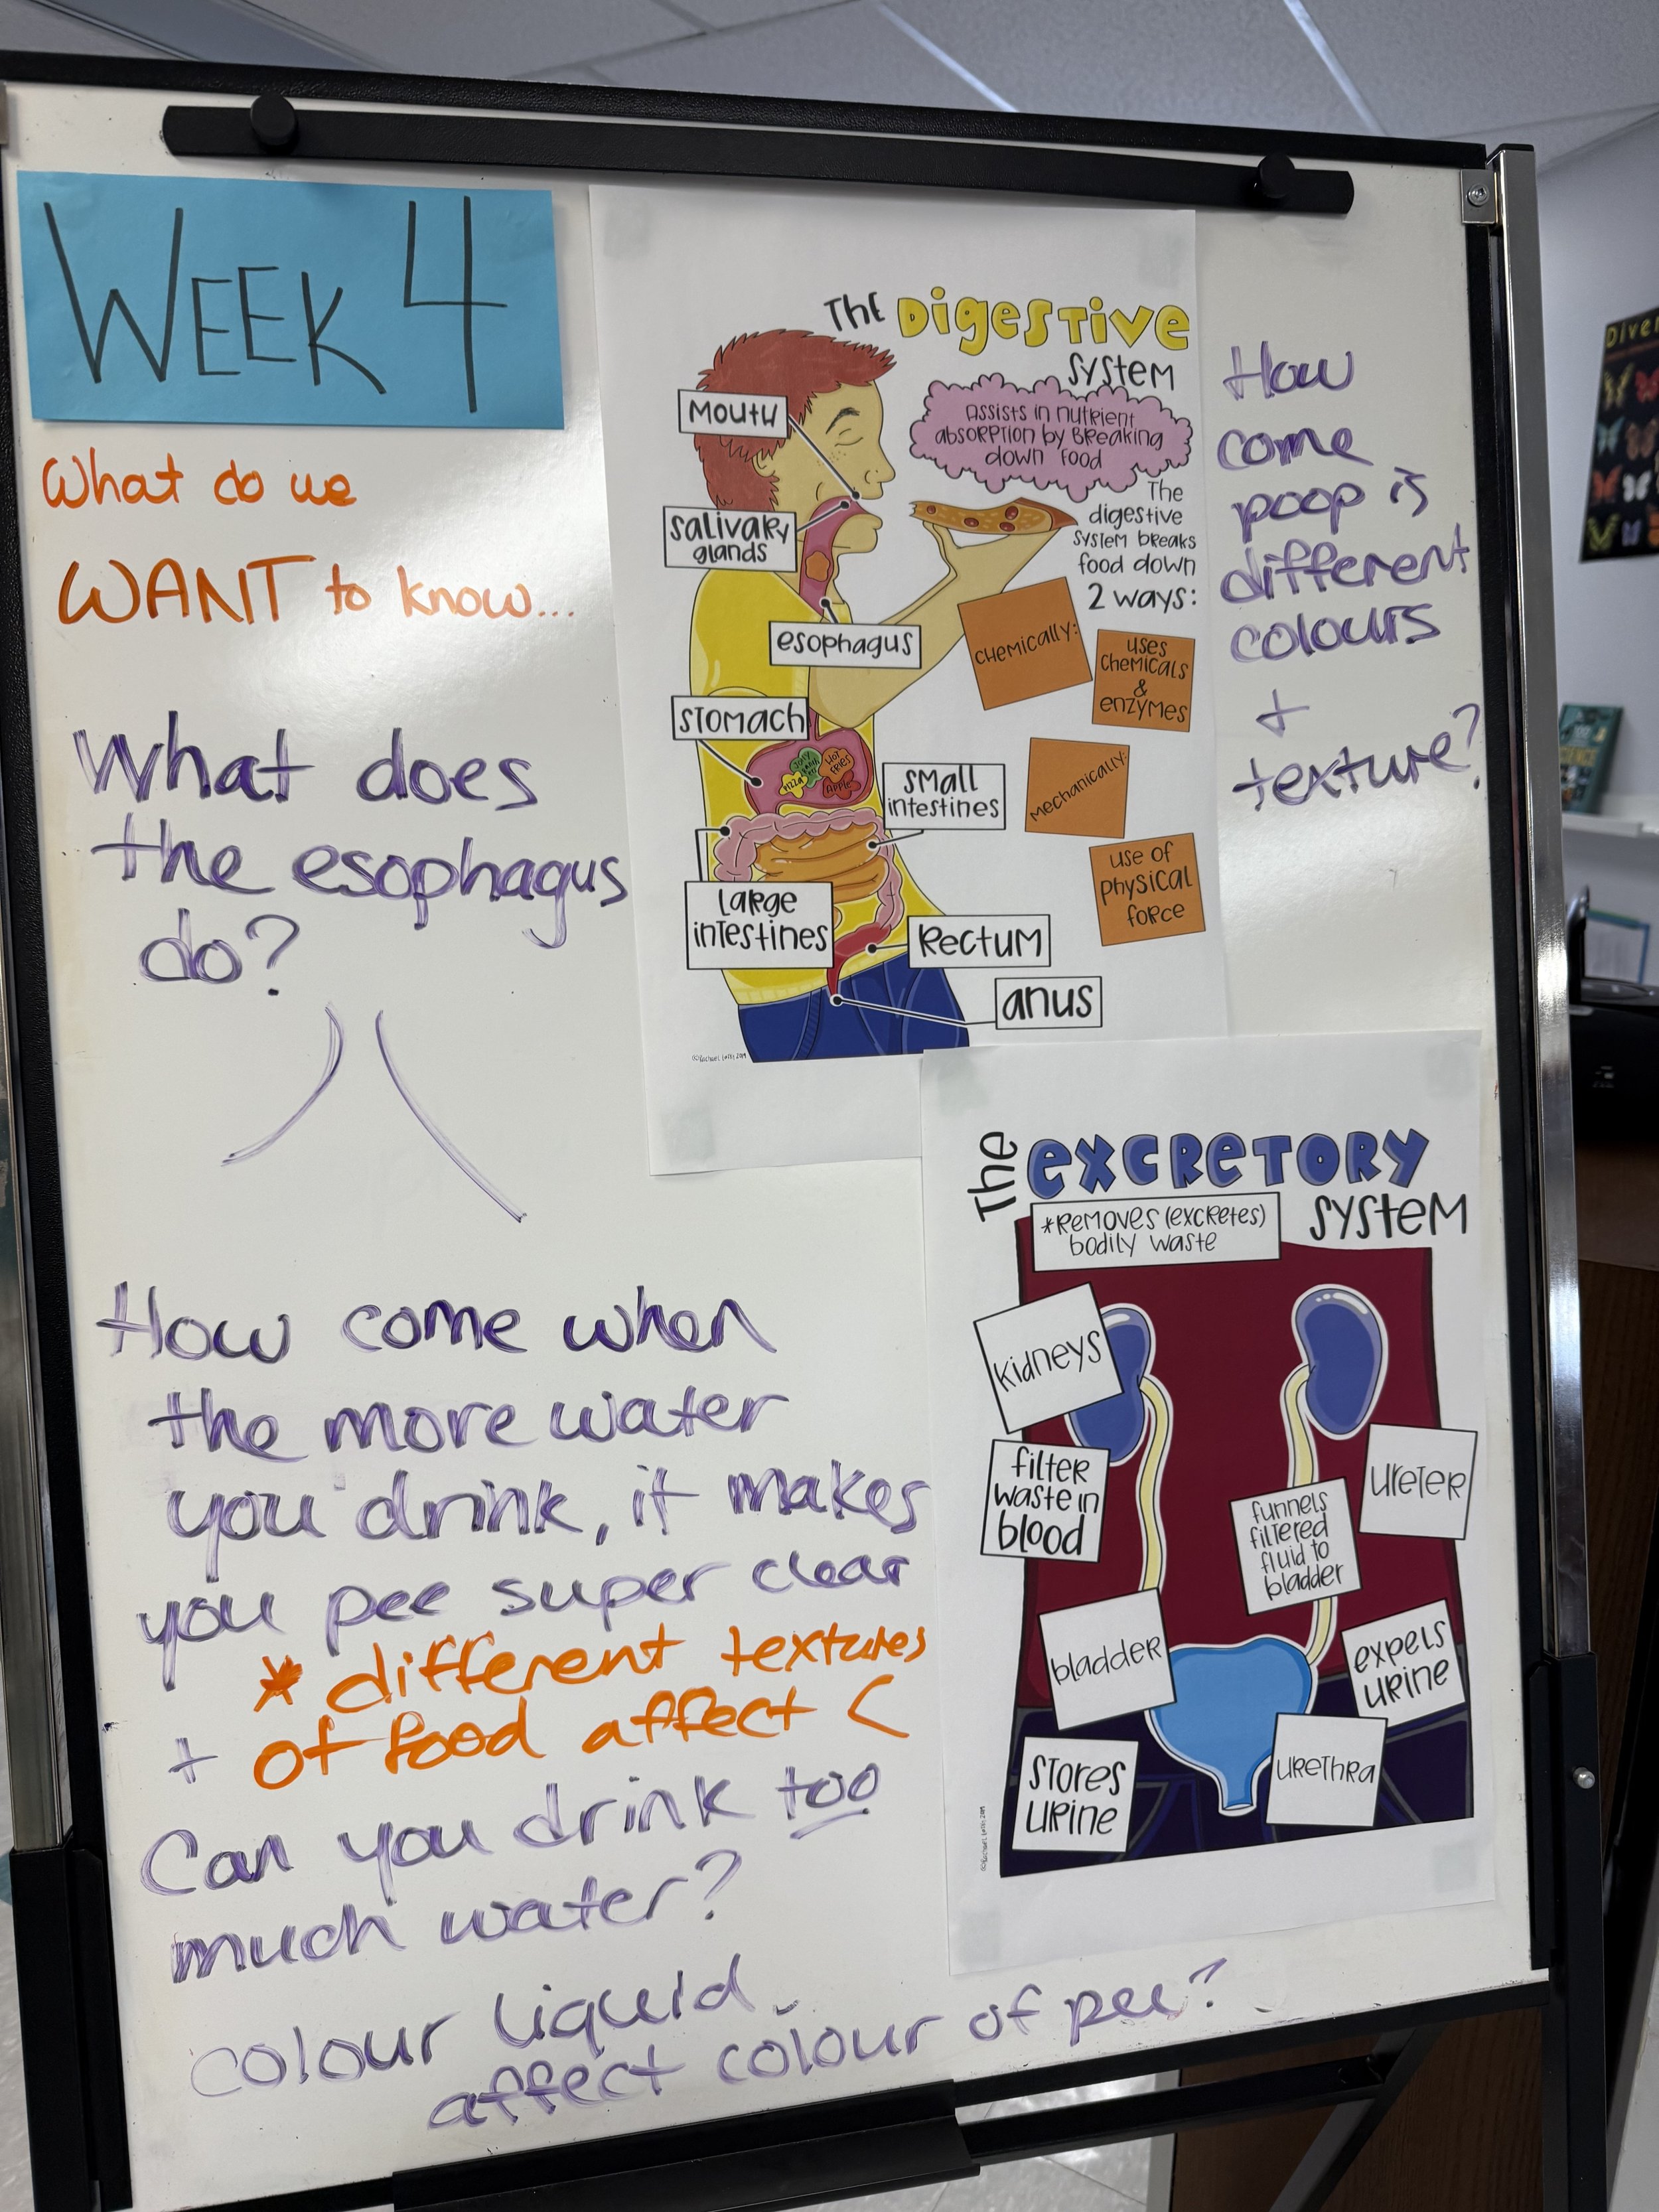 WEEK 4
What do we
WANT to know...
What does
the esophagus
do?
How come when
the more water
you drink, it makes
you pee super clear
* different textures
+ of food affect <
Can you drink too
much water?
colour liquid
affect colour of pee?
The Digestive
System
Assists in nutrient
absorption by breaking
down food
The
digestive
system breaks
food down
2 ways:
chemically:
uses
chemicals
&
enzymes
mechanically:
use of
physical
force
mouth
salivary
glands
esophagus
stomach
pizza
hot
fries
apple
small
intestines
large
intestines
rectum
anus
How
come
poop is
different
colours
+
texture?
The excretory
system
*Removes (excretes)
bodily waste
kidneys
filter
waste in
blood
ureter
funnels
filtered
fluid to
bladder
bladder
expels
urine
stores
urine
urethra
Diver